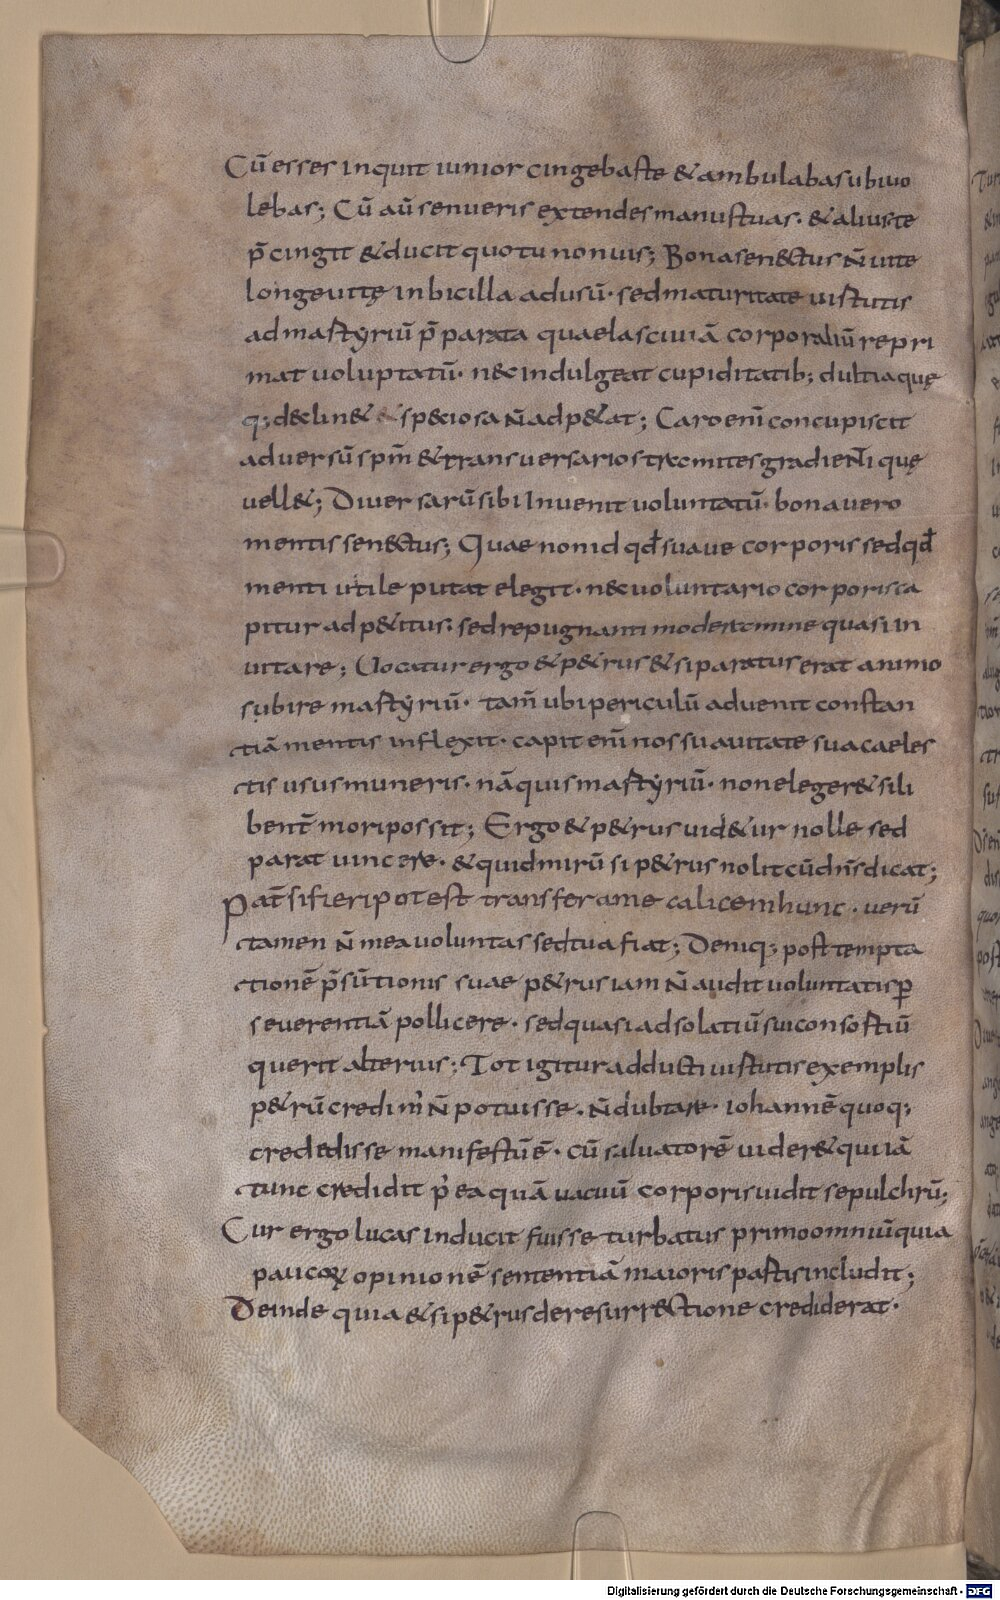 Cū esses inquit iunior cingebaste & ambulabas ubi uo
lebas; Cū aū senueris extendes manus tuas· & alius te
p̄cingit & ducit quo tu non uis; Bona sen&ctus n̄ uite
longeuitę inbicilla ad usū· sed maturitate uirtutis
ad martyriū p̄parata quae lasciuiā corporaliū repri
mat uoluptatū· nec indulgeat cupiditatib; dultiaquę
q; declin& speciosa n̄ adp&at; Caro enī concupiscit
aduersū spm̄ & transuersarios tramites gradienti quę
uell&; Diuersarū sibi inuenit uoluntatū· bona uero
mentis sen&ctus; Quae non id qd̄ suaue corporis sed qd̄
menti utile putat elegit· nec uoluntario corporis ca
pitur adp&itus· sed repugnanti moderamine quasi in
uitare; Uocatur ergo & p&rus & si paratus erat animo
subire martyriū· tam̄ ubi periculū aduenit constan
tiā mentis inflexit· capit enī nos suauitate sua caeles
tis usus muneris· nā quis martyriū· non eleger& si li
bent̄ mori possit; Ergo & p&rus uid&ur nolle sed
parat uincere· & quid mirū si p&rus nolit cū dn̄s dicat;
Pat̄ si fieri potest transfer a me calicem hunc· uerū
tamen n̄ mea uoluntas sed tua fiat; Deniq; post tempta
tionē p̄sūtionis suae p&rus iam n̄ audit uoluntatis p̱
seuerentiā pollicere· sed quasi ad solatiū sui consortiū
querit alterius; Tot igitur adducti uirtutis exemplis
p&rū credi m̄ n̄ potuisse· n̄ dubitare· iohannē quoq;
credidisse manifestū ē· cū saluatorē uider& qui iā
tunc credidit p̄ ea quā uacuū corporis uidit sepulchrū;
Cur ergo lucas inducit fuisse turbatus primo omniū quia
paucoꝝ opinionē sententiā maioris partis includit;
Deinde quia & si p&rus de resurrectione crediderat·
Digitalisierung gefördert durch die Deutsche Forschungsgemeinschaft - DFG